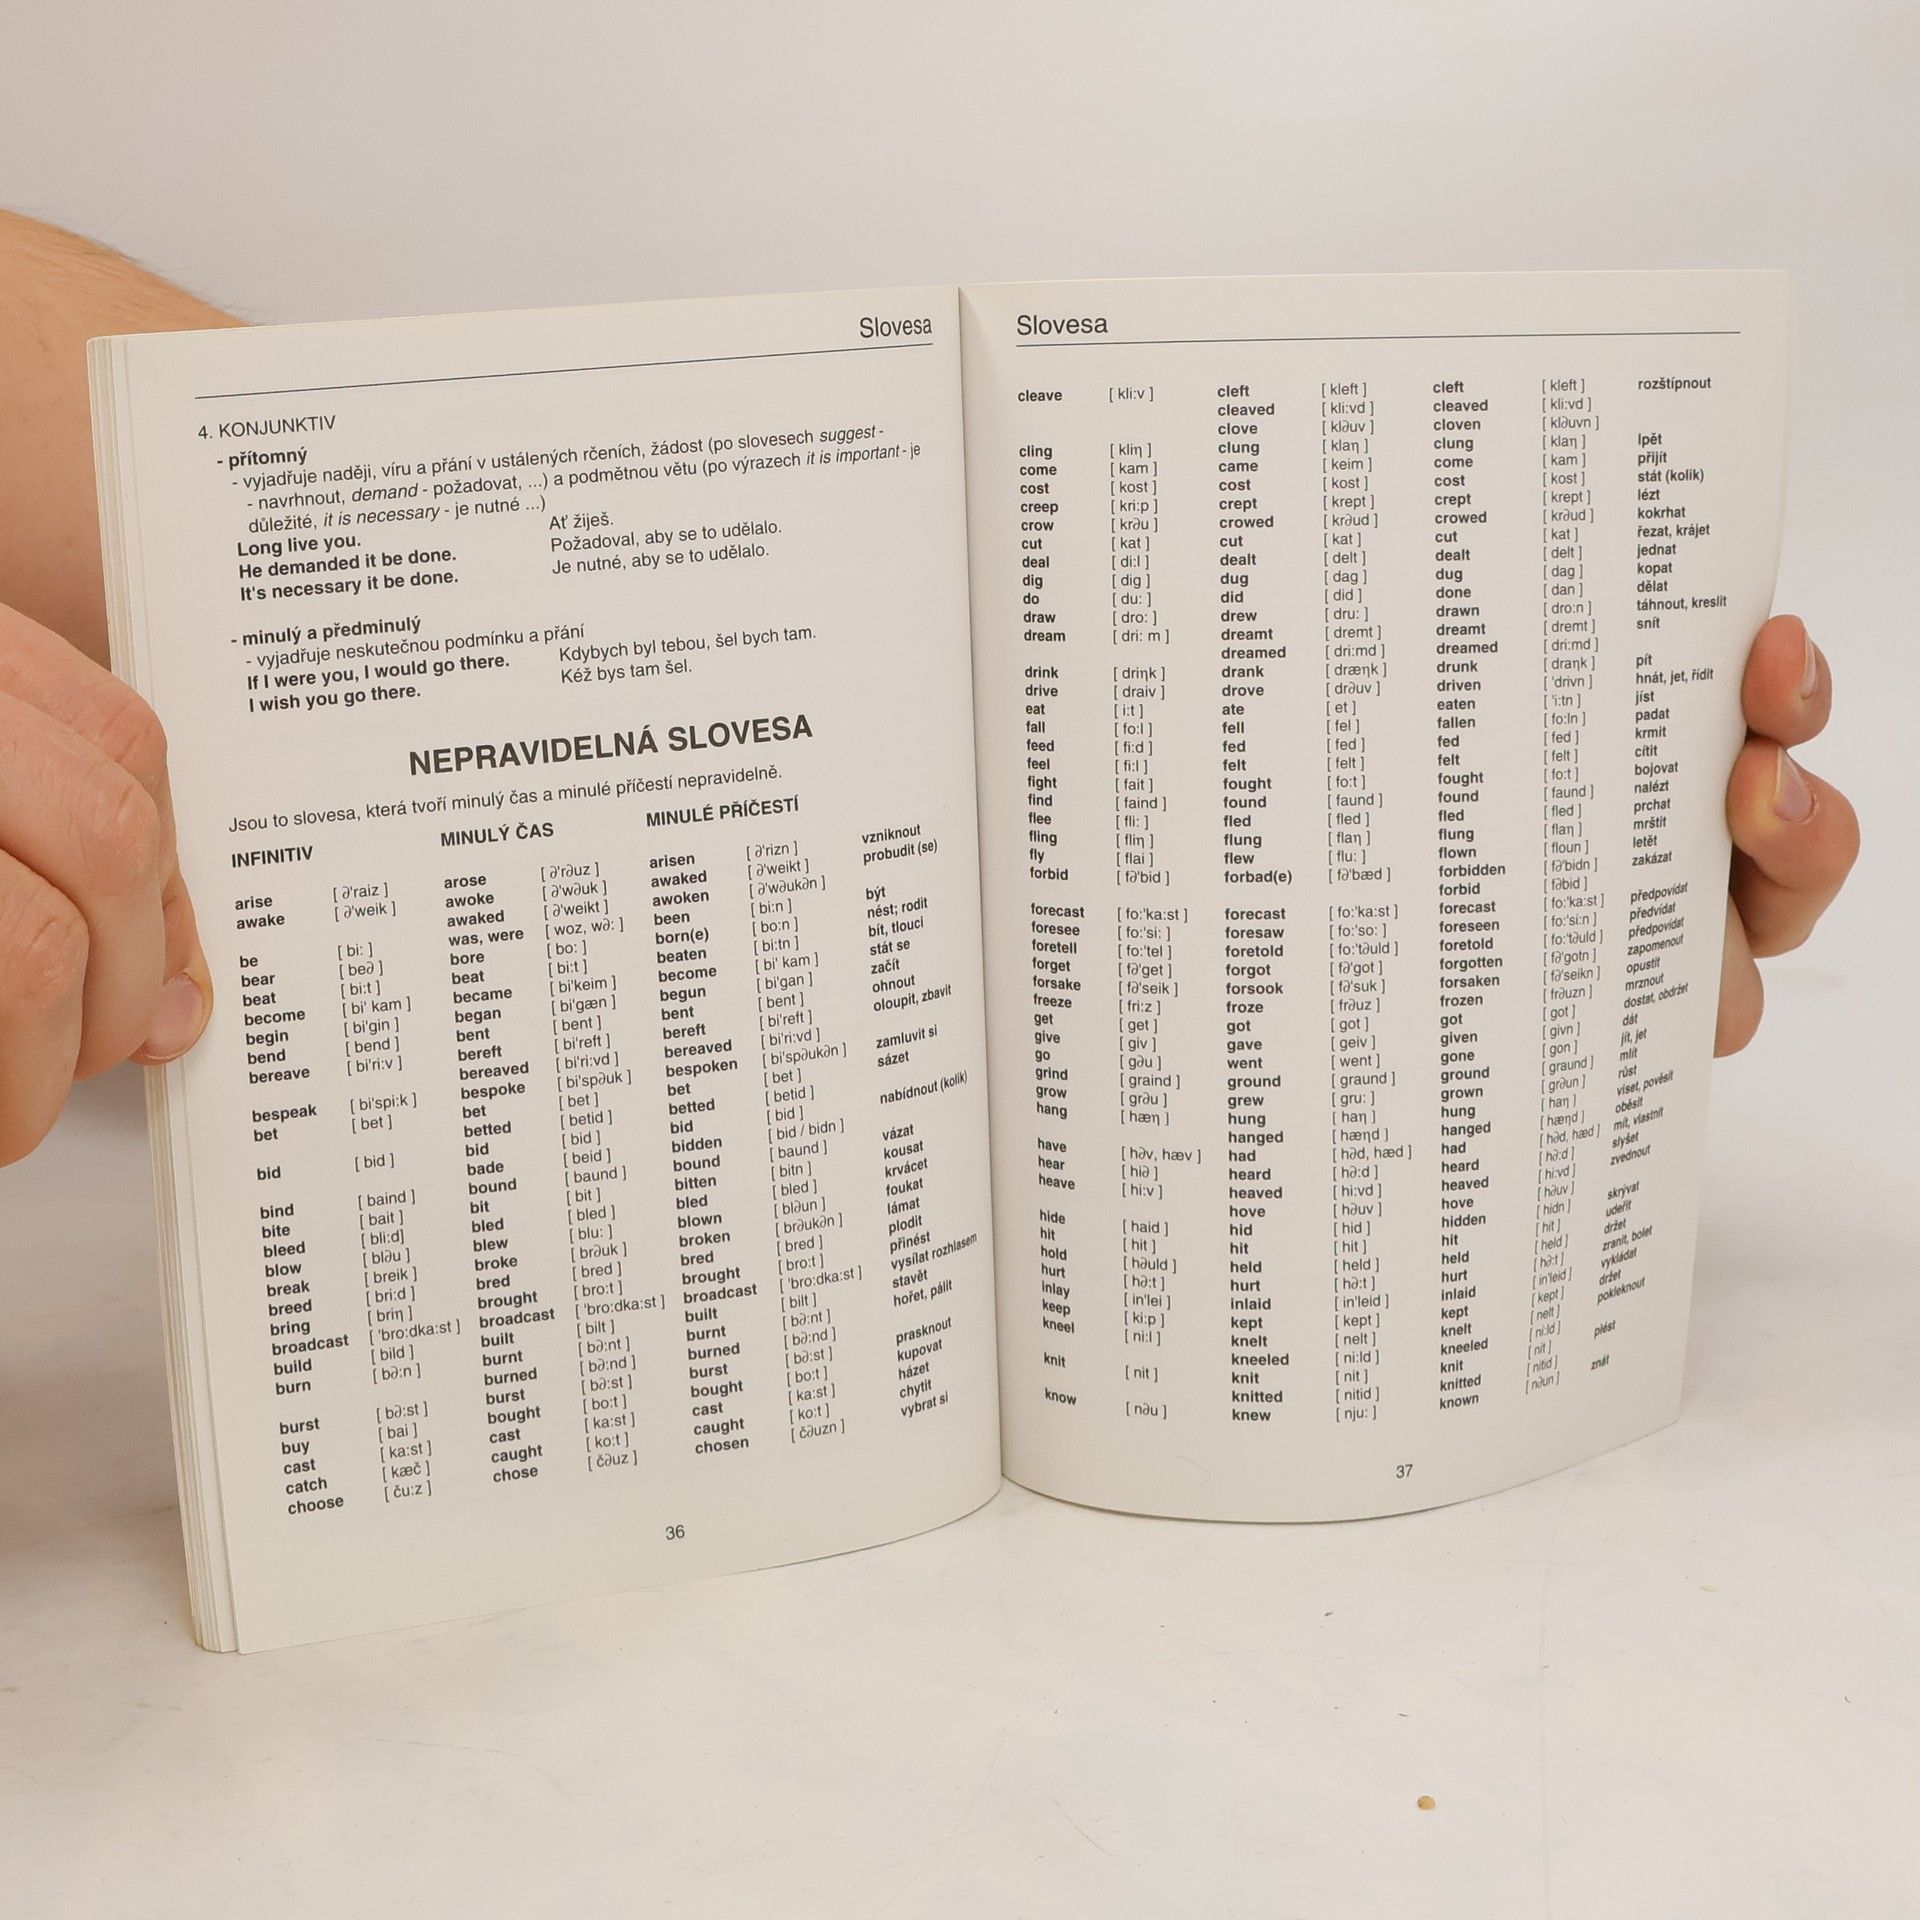 Slovesa
4. KONJUNKTIV
- přítomný
- vyjadřuje naději, víru a přání v ustálených rčeních, žádost (po slovesech suggest -
- navrhnout, demand - požadovat, ...) a podmětnou větu (po výrazech it is important - je
důležité, it is necessary - je nutné ...)
Long live you. Ať žiješ.
He demanded it be done. Požadoval, aby se to udělalo.
It's necessary it be done. Je nutné, aby se to udělalo.
- minulý a předminulý
- vyjadřuje neskutečnou podmínku a přání
If I were you, I would go there. Kdybych byl tebou, šel bych tam.
I wish you go there. Kéž bys tam šel.
NEPRAVIDELNÁ SLOVESA
Jsou to slovesa, která tvoří minulý čas a minulé příčestí nepravidelně.
INFINITIV MINULÝ ČAS MINULÉ PŘÍČESTÍ
arise [ ə'raiz ] arose [ ə'rəuz ] arisen [ ə'rizn ] vzniknout
awake [ ə'weik ] awoke [ ə'wəuk ] awaked [ ə'weikt ] probudit (se)
awaked [ ə'weikt ] awoken [ ə'wəukən ]
be [ bi: ] was, were [ woz, wə: ] been [ bi:n ] být
bear [ beə ] bore [ bo: ] born(e) [ bo:n ] nést; rodit
beat [ bi:t ] beat [ bi:t ] beaten [ bi:tn ] bít, tlouci
become [ bi' kam ] became [ bi'keim ] become [ bi' kam ] stát se
begin [ bi'gin ] began [ bi'gæn ] begun [ bi'gan ] začít
bend [ bend ] bent [ bent ] bent [ bent ] ohnout
bereave [ bi'ri:v ] bereft [ bi'reft ] bereft [ bi'reft ] oloupit, zbavit
bereaved [ bi'ri:vd ] bereaved [ bi'ri:vd ]
bespeak [ bi'spi:k ] bespoke [ bi'spəuk ] bespoken [ bi'spəukən ] zamluvit si
bet [ bet ] bet [ bet ] bet [ bet ] sázet
betted [ betid ] betted [ betid ]
bid [ bid ] bid [ bid ] bid [ bid ] nabídnout (kolik)
bade [ beid ] bidden [ bid / bidn ]
bind [ baind ] bound [ baund ] bound [ baund ] vázat
bite [ bait ] bit [ bit ] bitten [ bitn ] kousat
bleed [ bli:d] bled [ bled ] bled [ bled ] krvácet
blow [ bləu ] blew [ blu: ] blown [ bləun ] foukat
break [ breik ] broke [ brəuk ] broken [ brəukən ] lámat
breed [ bri:d ] bred [ bred ] bred [ bred ] plodit
bring [ briŋ ] brought [ bro:t ] brought [ bro:t ] přinést
broadcast [ 'bro:dka:st ] broadcast [ 'bro:dka:st ] broadcast [ 'bro:dka:st ] vysílat rozhlasem
build [ bild ] built [ bilt ] built [ bilt ] stavět
burn [ bə:n ] burnt [ bə:nt ] burnt [ bə:nt ] hořet, pálit
burned [ bə:nd ] burned [ bə:nd ]
burst [ bə:st ] burst [ bə:st ] burst [ bə:st ] prasknout
buy [ bai ] bought [ bo:t ] bought [ bo:t ] kupovat
cast [ ka:st ] cast [ ka:st ] cast [ ka:st ] házet
catch [ kæč ] caught [ ko:t ] caught [ ko:t ] chytit
choose [ ču:z ] chose [ čəuz ] chosen [ čəuzn ] vybrat si
36
Slovesa
cleave [ kli:v ] cleft [ kleft ] cleft [ kleft ] rozštípnout
cleaved [ kli:vd ] cleaved [ kli:vd ]
clove [ kləuv ] cloven [ kləuvn ]
cling [ kliŋ ] clung [ klaŋ ] clung [ klaŋ ] lpět
come [ kam ] came [ keim ] come [ kam ] přijít
cost [ kost ] cost [ kost ] cost [ kost ] stát (kolik)
creep [ kri:p ] crept [ krept ] crept [ krept ] lézt
crow [ krəu ] crowed [ krəud ] crowed [ krəud ] kokrhat
cut [ kat ] cut [ kat ] cut [ kat ] řezat, krájet
deal [ di:l ] dealt [ delt ] dealt [ delt ] jednat
dig [ dig ] dug [ dag ] dug [ dag ] kopat
do [ du: ] did [ did ] done [ dan ] dělat
draw [ dro: ] drew [ dru: ] drawn [ dro:n ] táhnout, kreslit
dream [ dri: m ] dreamt [ dremt ] dreamt [ dremt ] snít
dreamed [ dri:md ] dreamed [ dri:md ]
drink [ driŋk ] drank [ dræŋk ] drunk [ draŋk ] pít
drive [ draiv ] drove [ drəuv ] driven [ 'drivn ] hnát, jet, řídit
eat [ i:t ] ate [ et ] eaten [ 'i:tn ] jíst
fall [ fo:l ] fell [ fel ] fallen [ fo:ln ] padat
feed [ fi:d ] fed [ fed ] fed [ fed ] krmit
feel [ fi:l ] felt [ felt ] felt [ felt ] cítit
fight [ fait ] fought [ fo:t ] fought [ fo:t ] bojovat
find [ faind ] found [ faund ] found [ faund ] nalézt
flee [ fli: ] fled [ fled ] fled [ fled ] prchat
fling [ fliŋ ] flung [ flaŋ ] flung [ flaŋ ] mrštit
fly [ flai ] flew [ flu: ] flown [ floun ] letět
forbid [ fə'bid ] forbad(e) [ fə'bæd ] forbidden [ fə'bidn ] zakázat
forbid [ fəbid ]
forecast [ fo:'ka:st ] forecast [ fo:'ka:st ] forecast [ fo:'ka:st ] předpovídat
foresee [ fo:'si: ] foresaw [ fo:'so: ] foreseen [ fo:'si:n ] předvídat
foretell [ fo:'tel ] foretold [ fo:'təuld ] foretold [ fo:'təuld ] předpovídat
forget [ fə'get ] forgot [ fə'got ] forgotten [ fə'gotn ] zapomenout
forsake [ fə'seik ] forsook [ fə'suk ] forsaken [ fə'seikn ] opustit
freeze [ fri:z ] froze [ frəuz ] frozen [ frəuzn ] mrznout
get [ get ] got [ got ] got [ got ] dostat, obdržet
give [ giv ] gave [ geiv ] given [ givn ] dát
go [ gəu ] went [ went ] gone [ gon ] jít, jet
grind [ graind ] ground [ graund ] ground [ graund ] mlít
grow [ grəu ] grew [ gru: ] grown [ grəun ] růst
hang [ hæŋ ] hung [ haŋ ] hung [ haŋ ] viset, pověsit
hanged [ hæŋd ] hanged [ hæŋd ] oběsit
have [ həv, hæv ] had [ həd, hæd ] had [ həd, hæd ] mít, vlastnit
hear [ hiə ] heard [ hə:d ] heard [ hə:d ] slyšet
heave [ hi:v ] heaved [ hi:vd ] heaved [ hi:vd ] zvednout
hove [ həuv ] hove [ həuv ]
hide [ haid ] hid [ hid ] hidden [ hidn ] skrývat
hit [ hit ] hit [ hit ] hit [ hit ] udeřit
hold [ həuld ] held [ held ] held [ held ] držet
hurt [ hə:t ] hurt [ hə:t ] hurt [ hə:t ] zranit, bolet
inlay [ in'lei ] inlaid [ in'leid ] inlaid [ in'leid ] vykládat
keep [ ki:p ] kept [ kept ] kept [ kept ] držet
kneel [ ni:l ] knelt [ nelt ] knelt [ nelt ] pokleknout
kneeled [ ni:ld ] kneeled [ ni:ld ]
knit [ nit ] knit [ nit ] knit [ nit ] plést
knitted [ nitid ] knitted [ nitid ]
know [ nəu ] knew [ nju: ] known [ nəun ] znát
37